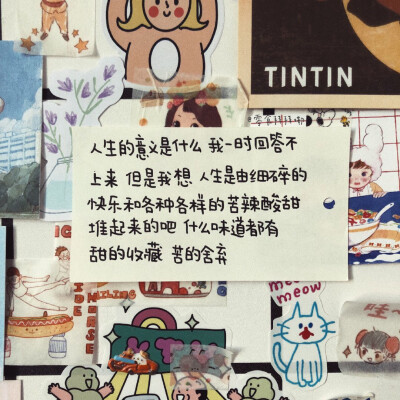 TINTIN
人生的意义是什么 我一时回答不
上来 但是我想 人生是由细碎的
快乐和各种各样的苦辣酸甜
堆起来的吧 什么味道都有
甜的收藏 苦的舍弃
meow
meow
哇~